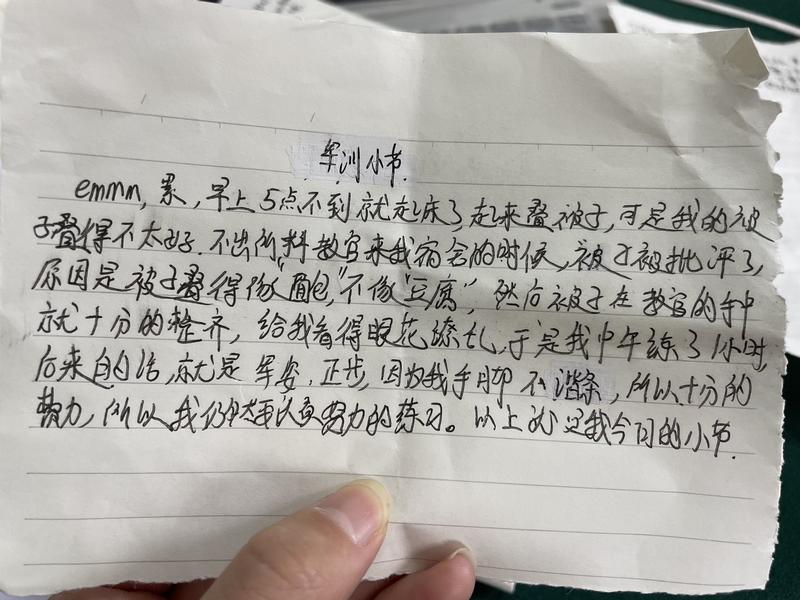 军训小节
emmm,累,早上5点不到就起床了,起来叠被子,可是我的被
子叠得不太好.不出所料教官来我宿舍的时候,被子被批评了,
原因是被子叠得像"面包,"不像"豆腐",然后被子在教官的手中
就十分的整齐,给我看得眼花缭乱,于是我中午练了1小时,
后来的话,就是军姿.正步,因为我手脚不谐条,所以十分的
费力,所以我仍然要认真努力的练习。以上就是我今日的小节.